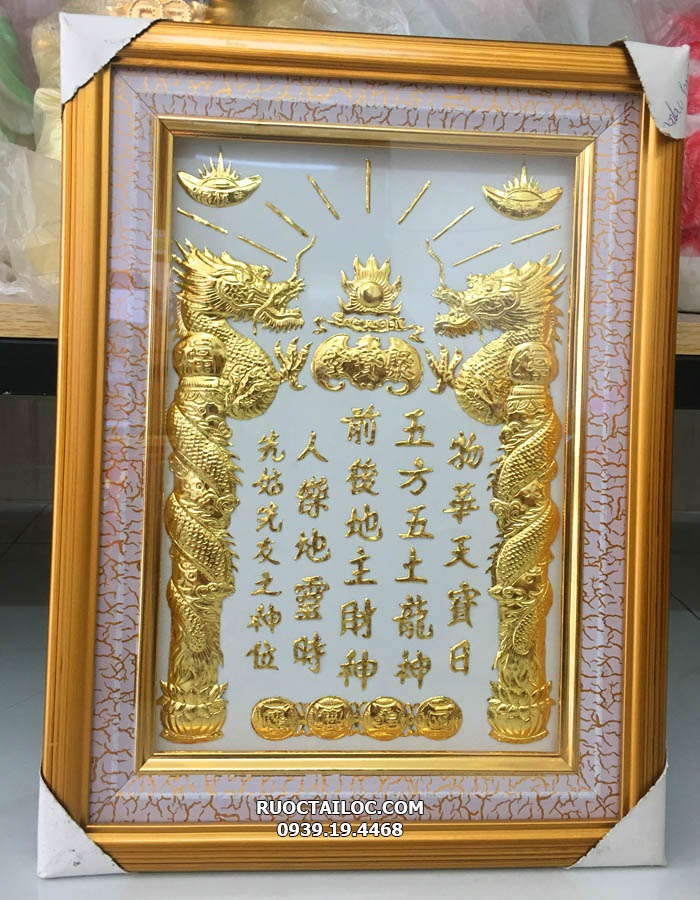 聚寶堂
物華天寶日
五方五土龍神
前後地主財神
人榮地靈時
先姑先友之神位
RUOCTAILOC.COM
0939.19.4468